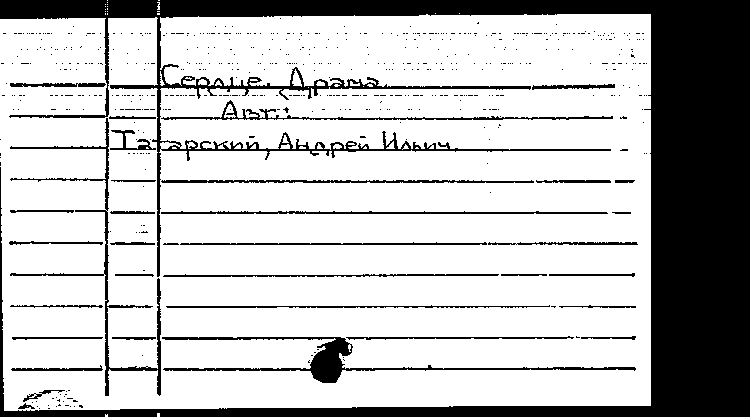 Сердце. Драма.
Авт.:
Татарский, Андрей Ильич.